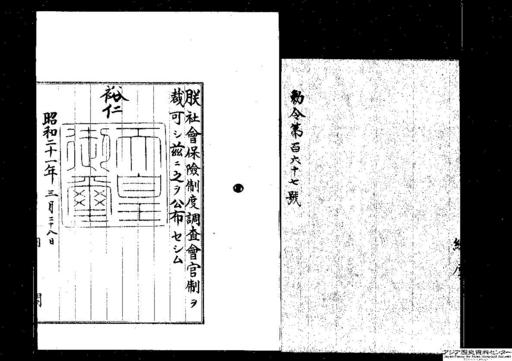 勅令第百六十七號
朕社會保險制度調査會官制ヲ
裁可シ茲ニ之ヲ公布セシム
裕仁
天皇御璽
昭和二十一年三月二十八日
アジア歴史資料センター